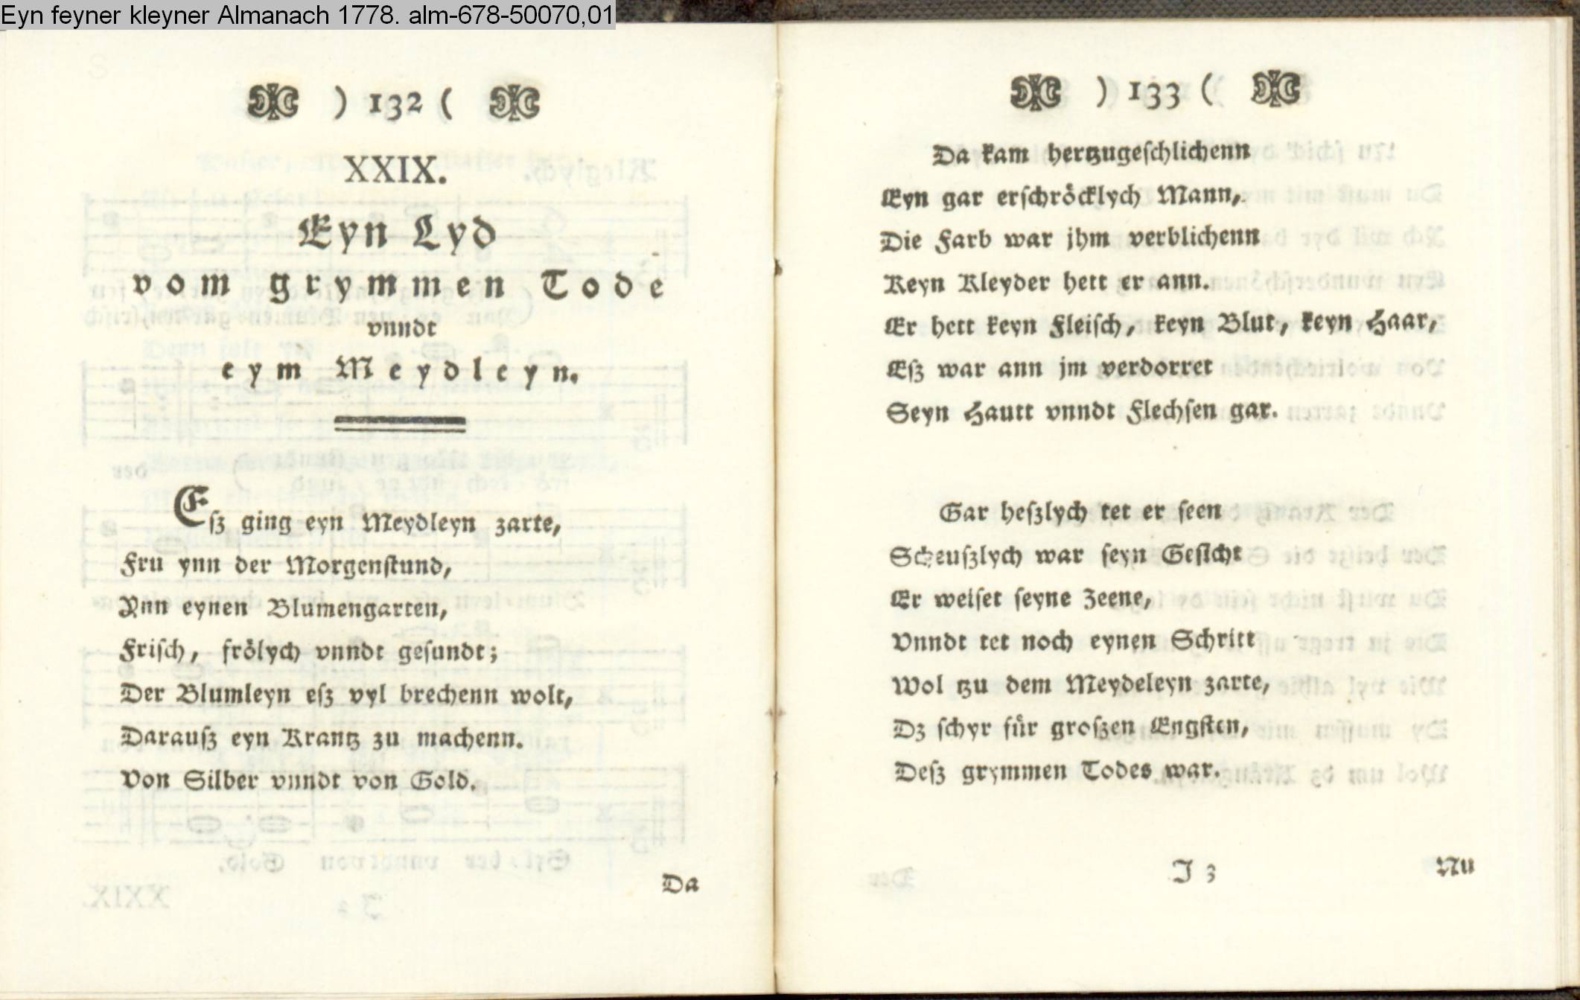 Eyn feyner kleyner Almanach 1778. alm-678-50070,01
) 132 (
XXIX.
Eyn Lyd
vom grymmen Tode
vnndt
eym Meydleyn.
Esz ging eyn Meydleyn zarte,
Fru ynn der Morgenstund,
Ynn eynen Blumengarten,
Frisch, frölych vnndt gesundt;
Der Blumleyn esz vyl brechenn wolt,
Darausz eyn Krantz zu machenn.
Von Silber vnndt von Gold.
Da
) 133 (
Da kam hertzugeschlichenn
Eyn gar erschröcklych Mann,
Die Farb war jhm verblichenn
Keyn Kleyder hett er ann.
Er hett keyn Fleisch, keyn Blut, keyn Haar,
Esz war ann jm verdorret
Seyn Hautt vnndt Flechsen gar.
Gar heszlych tet er seen
Scheuszlych war seyn Gesicht
Er weiset seyne Zeene,
Vnndt tet noch eynen Schritt
Wol tzu dem Meydeleyn zarte,
Dz schyr für groszen Engsten,
Desz grymmen Todes war.
J 3
Nu